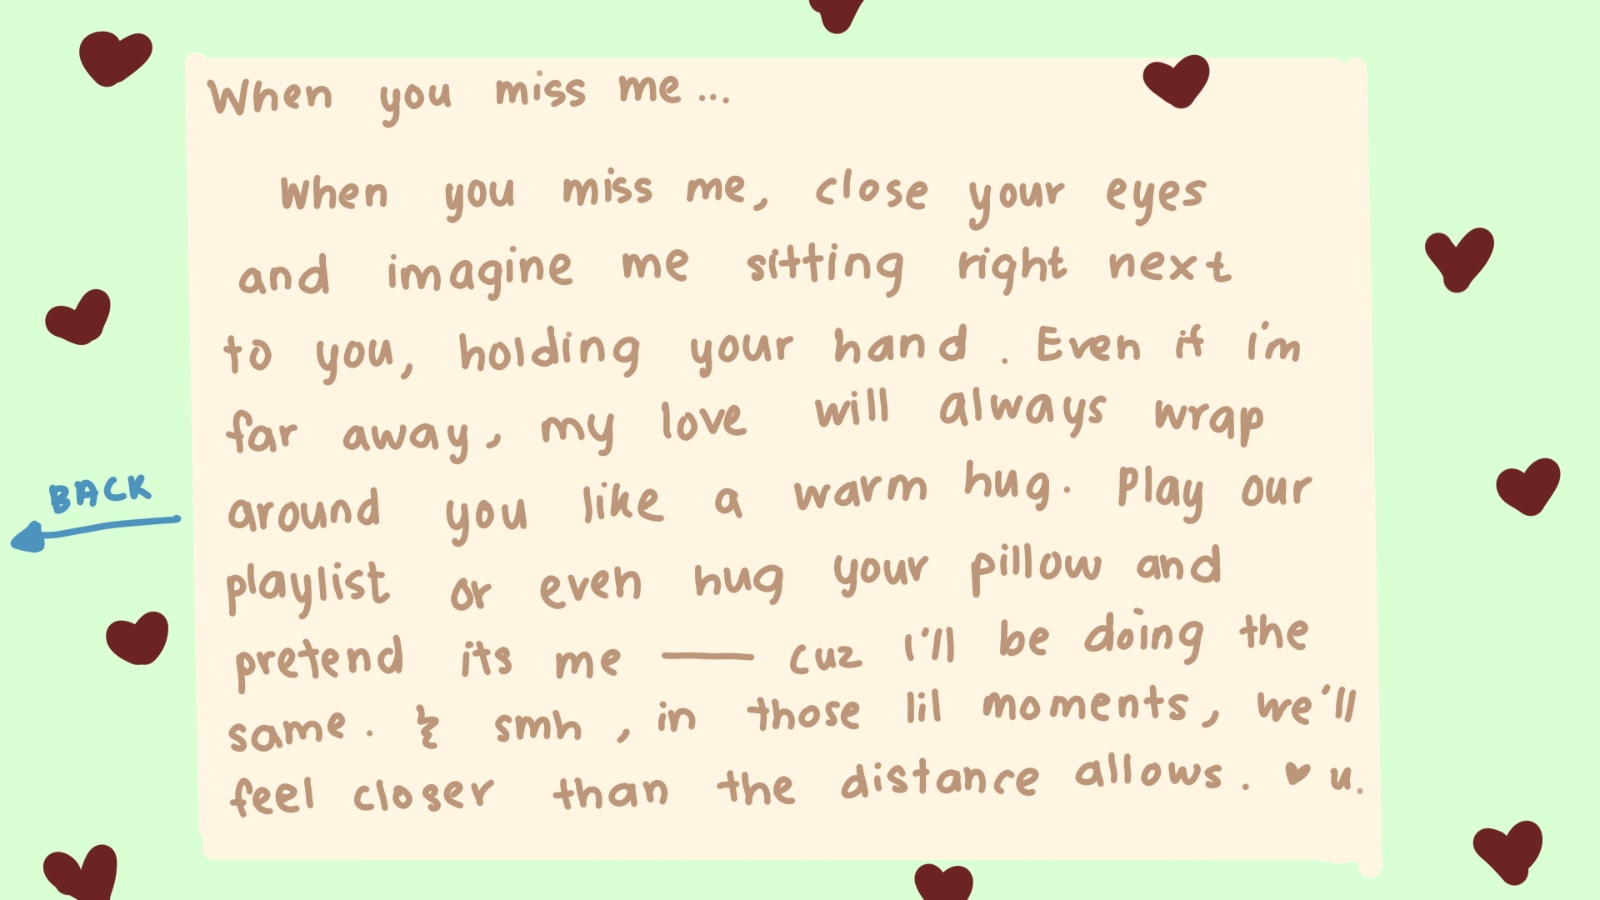 When you miss me...
When you miss me, close your eyes
and imagine me sitting right next
to you, holding your hand. Even if i'm
far away, my love will always wrap
around you like a warm hug. Play our
playlist or even hug your pillow and
pretend its me — cuz i'll be doing the
same. & smh, in those lil moments, we'll
feel closer than the distance allows. ♥ u.
BACK